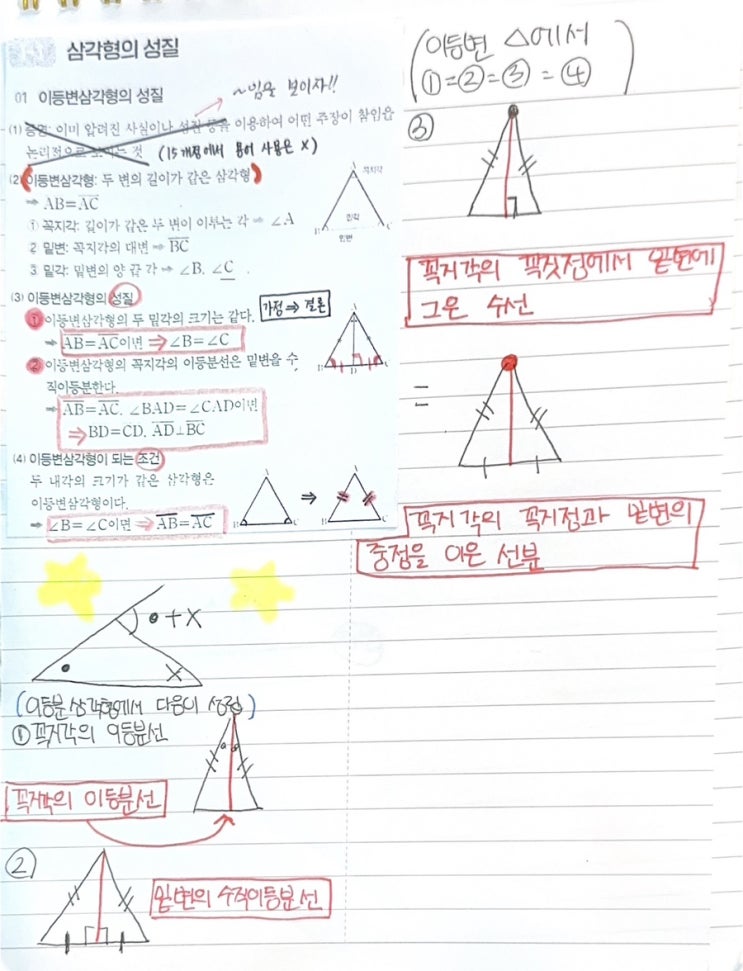 삼각형의 성질
01 이등변삼각형의 성질
~임을 보이자!!
(1) 증명: 이미 알려진 사실이나 성질 등을 이용하여 어떤 주장이 참임을
논리적으로 보이는 것 (15개정에서 용어 사용은 X)
(2) 이등변삼각형: 두 변의 길이가 같은 삼각형
⇒ AB=AC
① 꼭지각: 길이가 같은 두 변이 이루는 각 ⇒ ∠A
2 밑변: 꼭지각의 대변 ⇒ BC
3 밑각: 밑변의 양 끝 각 ⇒ ∠B, ∠C
A 꼭지각
밑각
B C
밑변
(3) 이등변삼각형의 성질
가정 ⇒ 결론
① 이등변삼각형의 두 밑각의 크기는 같다.
⇒ AB=AC이면 ⇒ ∠B=∠C
② 이등변삼각형의 꼭지각의 이등분선은 밑변을 수
직이등분한다.
⇒ AB=AC, ∠BAD=∠CAD이면
⇒ BD=CD, AD⊥BC
A
B D C
(4) 이등변삼각형이 되는 조건
두 내각의 크기가 같은 삼각형은
이등변삼각형이다.
⇒ ∠B=∠C이면 ⇒ AB=AC
A
B C
⇒
A
B C
●+X
● X
(이등분삼각형에서 다음의 성질)
① 꼭지각의 이등분선
꼭지각의 이등분선
②
밑변의 수직이등분선
(이등변 △에서
①=②=③=④)
③
꼭지각의 꼭짓점에서 밑변에
그은 수선
=
꼭지각의 꼭지점과 밑변의
중점을 이은 선분